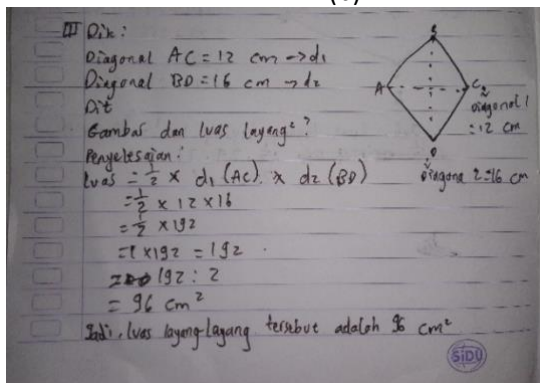 II Dik:
Diagonal AC = 12 cm → d1
Diagonal BD = 16 cm → d2
Dit
Gambar dan luas layang² ?
Penyelesaian:
Luas = 1/2 × d1 (AC) × d2 (BD)
= 1/2 × 12 × 16
= 1/2 × 192
= 1 × 192 = 192
192 : 2
= 96 cm²
Jadi, luas layang-layang tersebut adalah 96 cm²
B
A
C
Diagonal 1
= 12 cm
D
Diagona 2 = 16 cm
SIDU